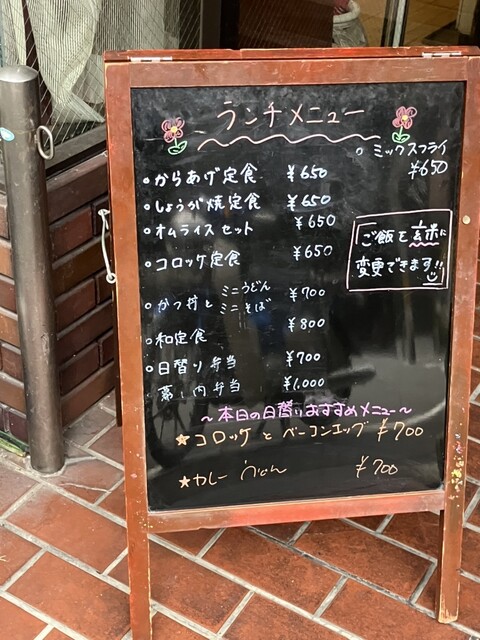 ランチメニュー
ミックスフライ
¥650
からあげ定食 ¥650
しょうが焼定食 ¥650
オムライスセット ¥650
コロッケ定食 ¥650
ご飯を 玄米に
変更できます!!
かつ丼と ミニうどん ミニそば ¥700
和定食 ¥800
日替り弁当 ¥700
幕ノ内弁当 ¥1,000
~本日の日替りおすすめメニュー~
★コロッケとベーコンエッグ ¥700
★カレーうどん ¥700